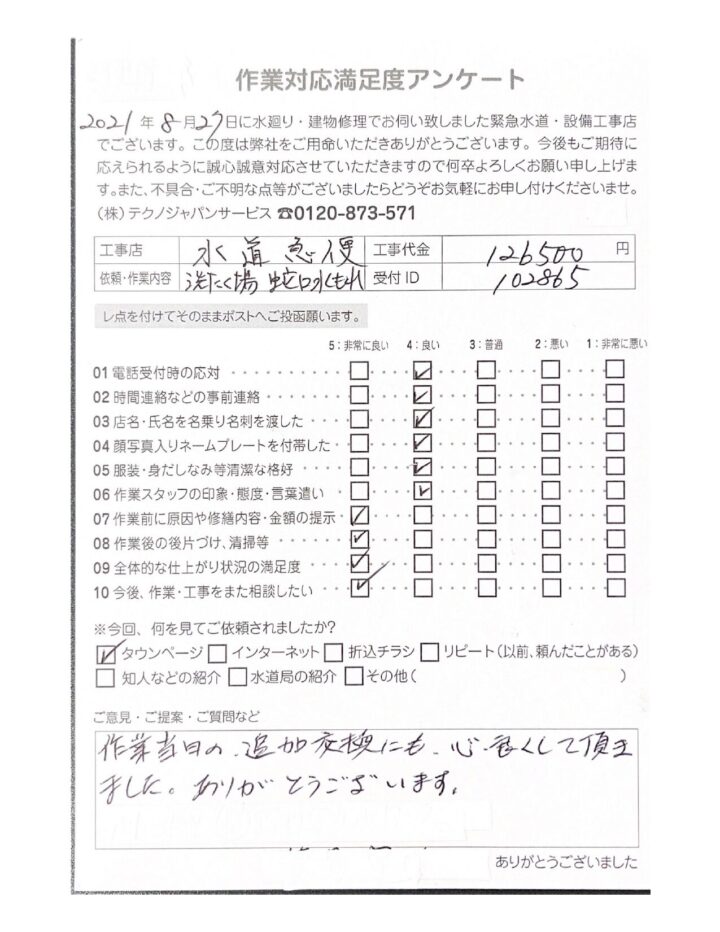 作業対応満足度アンケート
2021年8月27日に水廻り・建物修理でお伺い致しました緊急水道・設備工事店
でございます。この度は弊社をご用命いただきありがとうございます。今後もご期待に
応えられるように誠心誠意対応させていただきますので何卒よろしくお願い申し上げま
す。また、不具合・ご不明な点等がございましたらどうぞお気軽にお申し付けくださいませ。
(株)テクノジャパンサービス ☎0120-873-571
工事店 水道急便 工事代金 126500 円
依頼・作業内容 洗たく場 蛇口水もれ 受付ID 102865
レ点を付けてそのままポストへご投函願います。
5:非常に良い 4:良い 3:普通 2:悪い 1:非常に悪い
01 電話受付時の応対
02 時間連絡などの事前連絡
03 店名・氏名を名乗り名刺を渡した
04 顔写真入りネームプレートを付帯した
05 服装・身だしなみ等清潔な格好
06 作業スタッフの印象・態度・言葉遣い
07 作業前に原因や修繕内容・金額の提示
08 作業後の後片づけ、清掃等
09 全体的な仕上がり状況の満足度
10 今後、作業・工事をまた相談したい
※今回、何を見てご依頼されましたか?
タウンページ インターネット 折込チラシ リピート(以前、頼んだことがある)
知人などの紹介 水道局の紹介 その他( )
ご意見・ご提案・ご質問など
作業当日の、追加交換にも、心良くして頂き
ました。ありがとうございます。
ありがとうございました